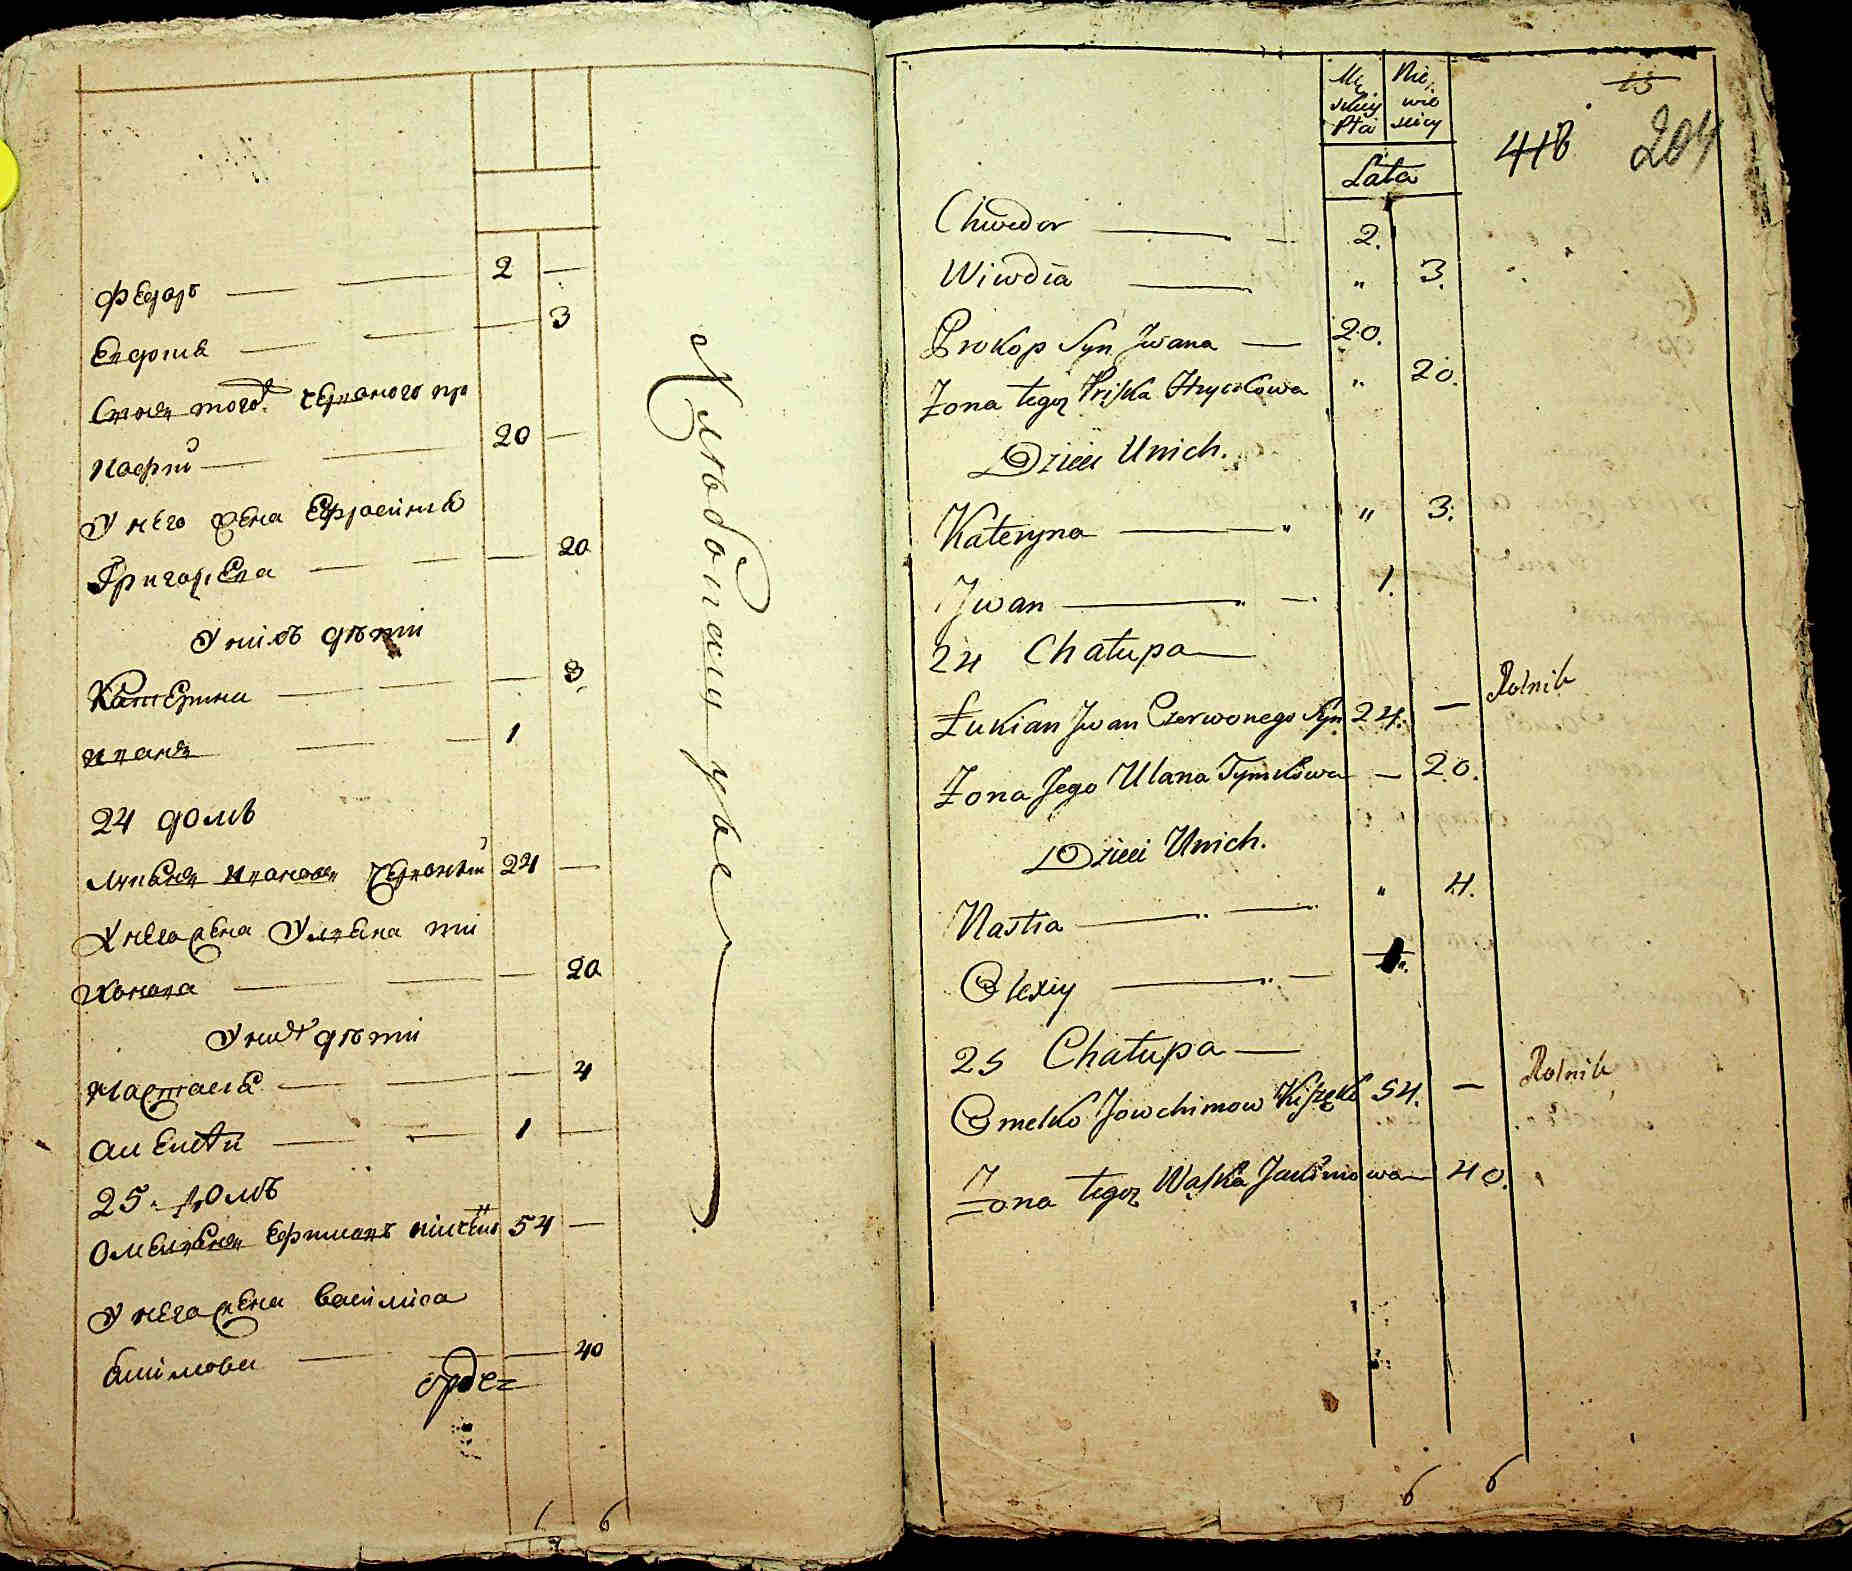 Федоръ — — 2 —
Евдокия — — — 3
Сынъ того Червоного пр
кофий — — 20 —
У него жена Ефросиния
Григорьева — — — 20
У нихъ дѣти
Катерина — — — 3
Иванъ — — 1
24 домъ
Лукьянъ Ивановъ Червоный 24 —
У него жена Ульяна ти
хонова — — — 20
У нихъ дѣти
Настасья — — — 4
Алексѣй — — 1 —
25. домъ
Омельянъ Ефимовъ 54 —
У него жена Василиса
Акимова — — — 40
6
Любопскій уѣз
Mę skiey Płci
Nie wie sciey
Lata
15
418
204
Chwedor — — 2.
Wiwdia — " 3.
Prokop Syn Jwana — 20.
Żona tegoz Priska Hryckowa " 20.
Dzieci Unich.
Kateryna — " " 3.
Jwan — — 1.
24 Chałupa —
Łukian Jwan Czerwonego Syn 24. — Rolnik
Żona Jego Ulana Tymkowa — 20.
Dzieci Unich.
Nastia — — " 4.
Olexiy — — 1.
25 Chałupa —
Omelko Jowchimow 54. — Rolnik
Żona tegoz Waska Jackimowa — 40.
6 6